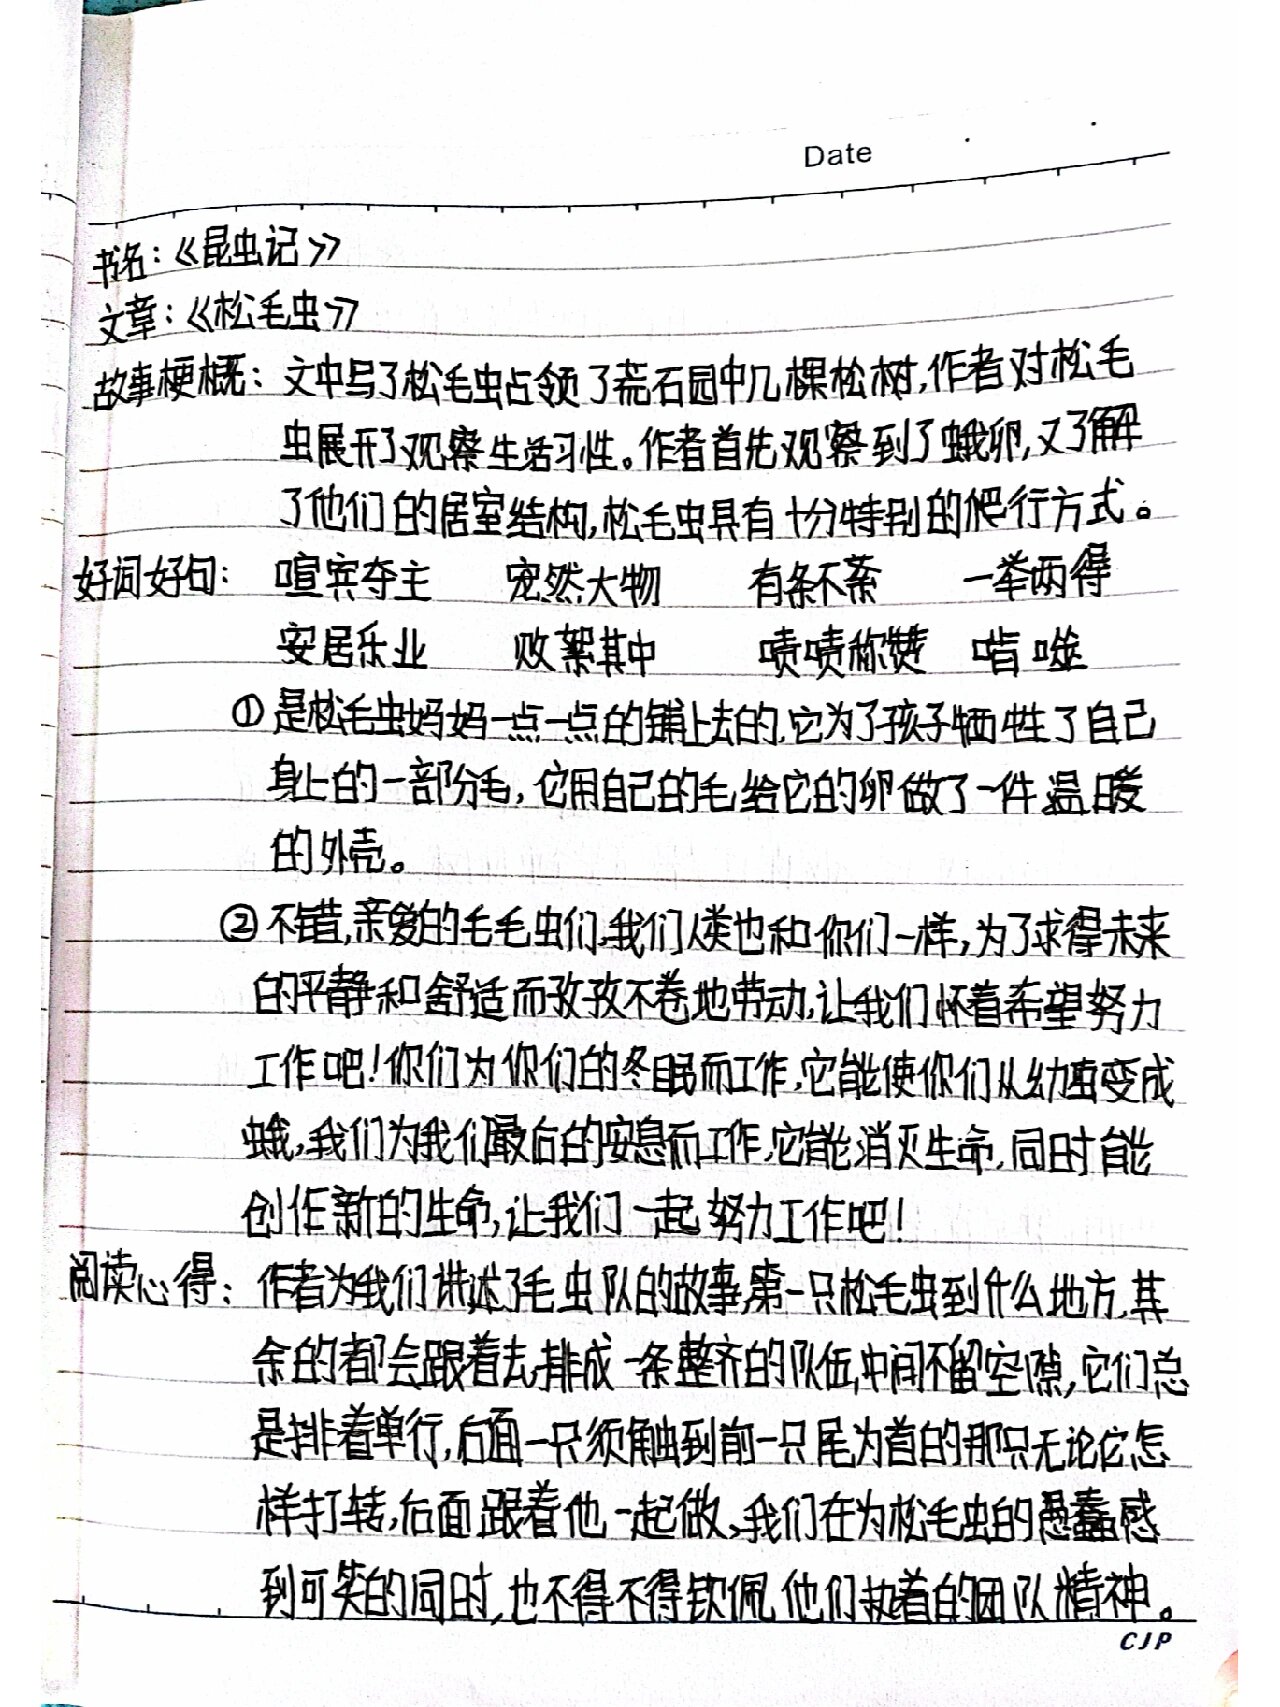 Date
书名：《昆虫记》
文章：《松毛虫》
故事梗概：文中写了松毛虫占领了荒石园中几棵松树，作者对松毛
虫展开了观察生活习性。作者首先观察到了蛾卵，又了解
了他们的居室结构，松毛虫具有十分特别的爬行方式。
好词好句：喧宾夺主 宠然大物 有条不紊 一举两得
安居乐业 败絮其中 啧啧称赞 啃噬
①是松毛虫妈妈一点一点的铺上去的，它为了孩子牺牲了自己
身上的一部分毛，它用自己的毛给它的卵做了一件温暖
的外壳。
②不错，亲爱的毛毛虫们，我们人类也和你们一样，为了求得未来
的平静和舒适而孜孜不卷地劳动，让我们怀着希望努力
工作吧！你们为你们的冬眠而工作，它能使你们从幼虫变成
蛾，我们为我们最后的安息而工作，它能消灭生命，同时能
创作新的生命，让我们一起努力工作吧！
阅读心得：作者为我们讲述了毛虫队的故事，第一只松毛虫到什么地方，其
余的都会跟着去，排成一条整齐的队伍，中间不留空隙，它们总
是排着单行，后面一只须触到前一只尾，为首的那只无论它怎
样打转，后面跟着他一起做，我们在为松毛虫的愚蠢感
到可笑的同时，也不得不得钦佩他们执着的团队精神。
CJP